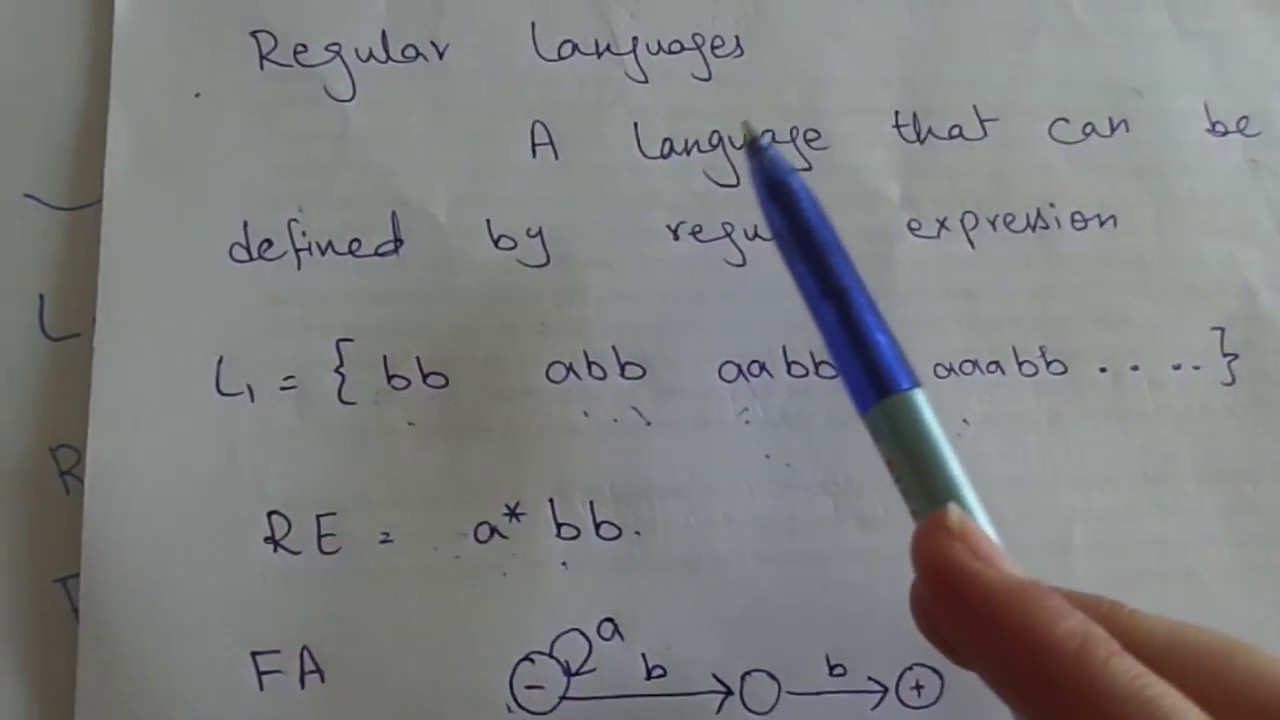 Regular Languages
A language that can be
defined by expression
L₁ = { bb abb aabb aaabb . . . . . }
RE = a* bb.
FA - a b b +
L
R